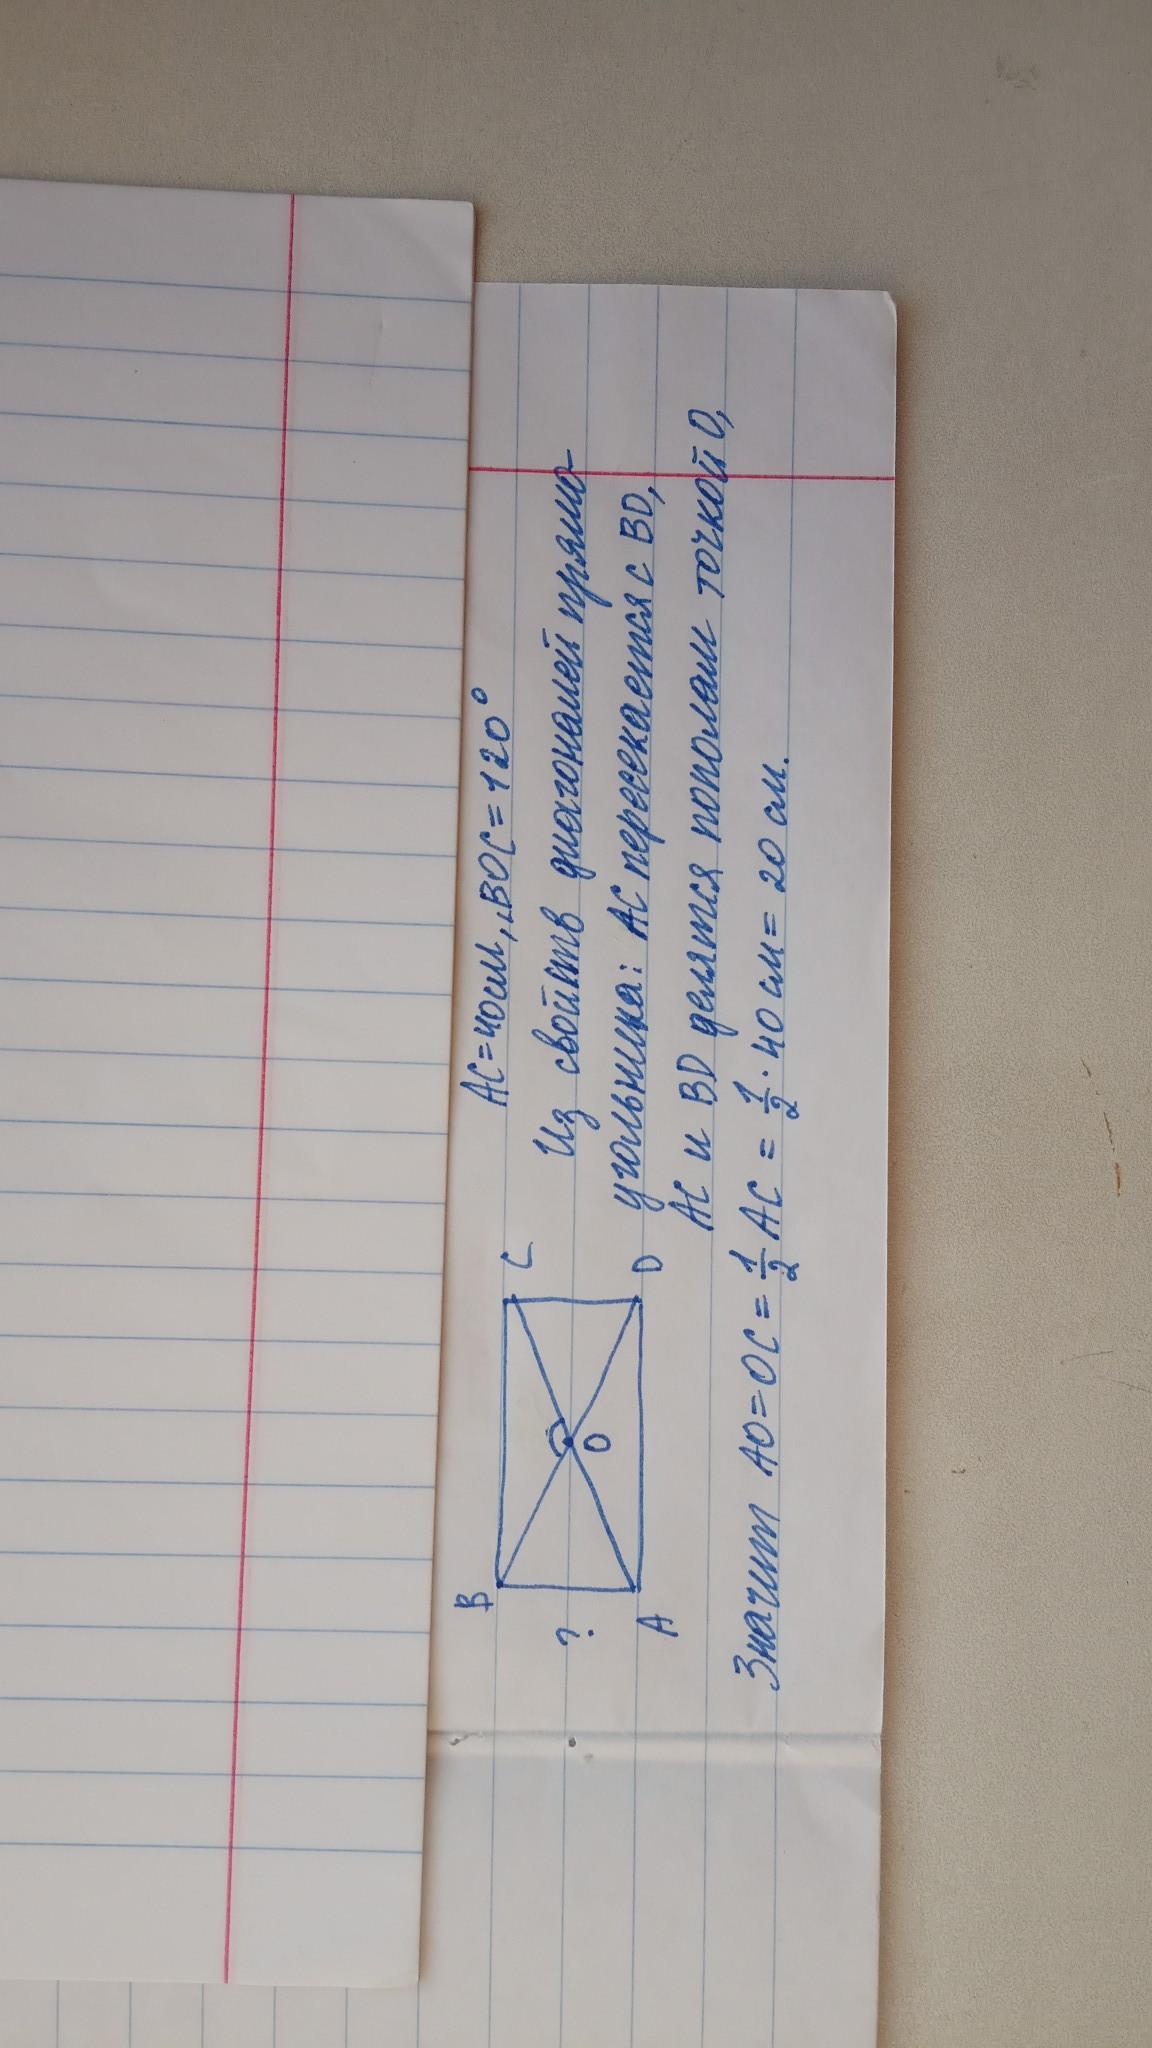 AC=40см, ∠BOC=120°
Из свойств диагоналей прямо-
угольника: AC пересекается с BD,
AC и BD делятся пополам точкой O,
Значит AO=OC=1/2 AC = 1/2 · 40 см = 20 см.
B
C
?
O
A
D